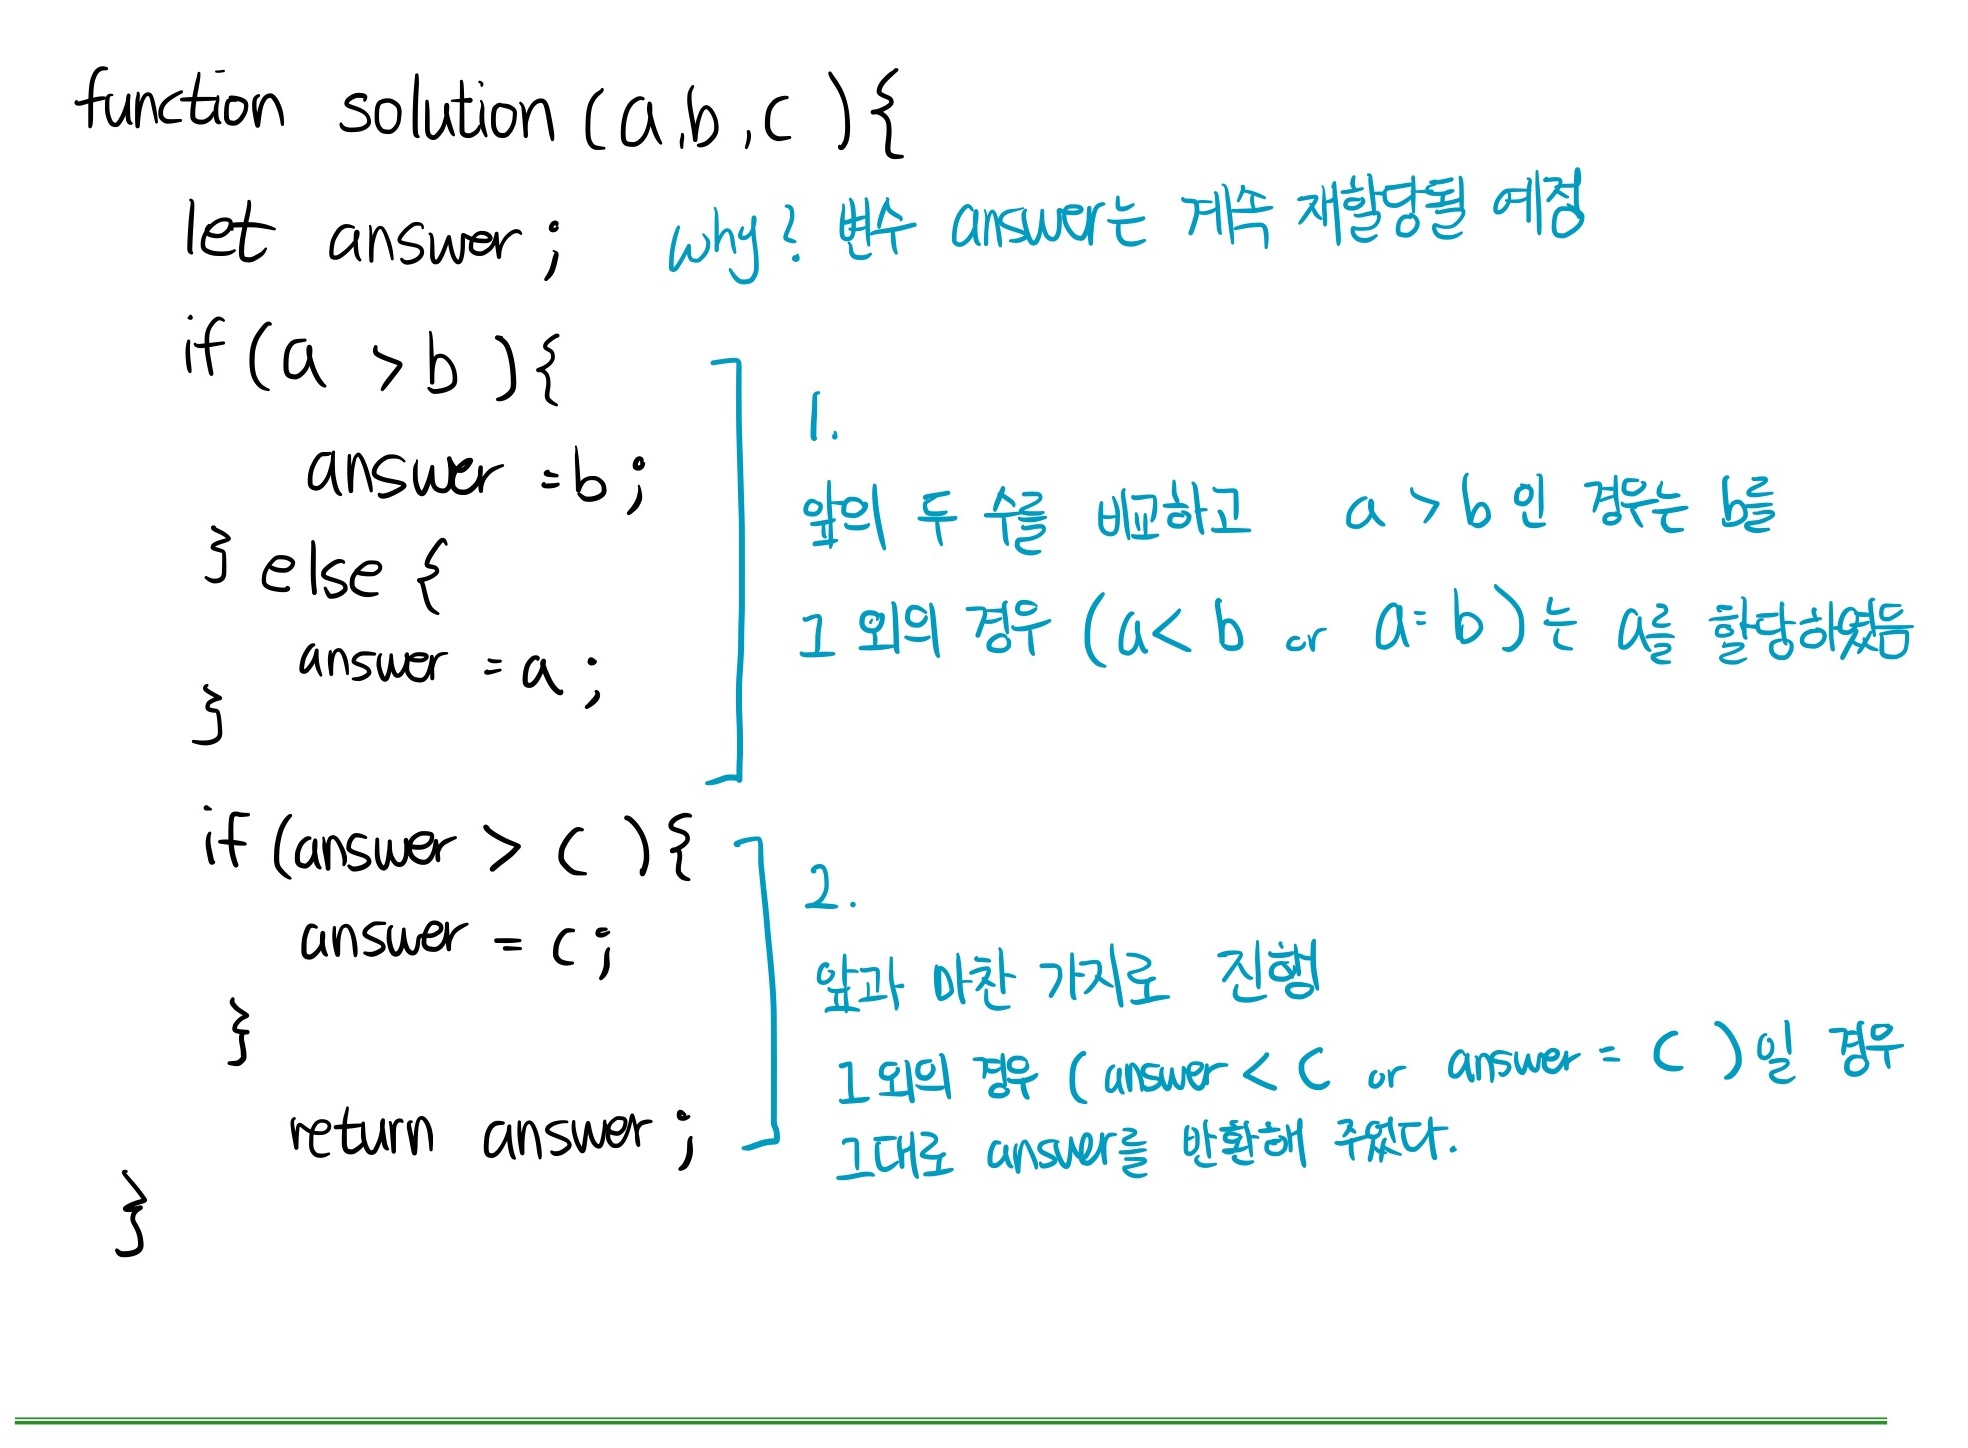 function solution (a,b,c ){
let answer ; why? 변수 answer는 계속 재할당될 예정
if (a > b ){
answer = b ;
} else {
answer = a ;
}
1.
앞의 두 수를 비교하고 a > b 인 경우는 b를
그 외의 경우 (a < b or a = b )는 a를 할당하였음
if (answer > c ){
answer = c ;
}
return answer ;
2.
앞과 마찬 가지로 진행
그 외의 경우 ( answer < c or answer = c ) 일 경우
그대로 answer를 반환해 주었다.
}